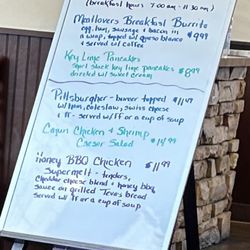 (breakfast hours 7:00am - 11:30am)
Meatlovers Breakfast Burrito
egg, ham, sausage + bacon in $9.99
a wrap, topped w/ queso blanco
+ served w/ coffee
Key Lime Pancakes
short stack key lime pancakes $8.99
drizzled w/ sweet cream
Pittsburgher - burger topped $11.49
w/ ham, coleslaw, swiss cheese
+ ff - served w/ ff or a cup of soup
Cajun Chicken & Shrimp
Caesar Salad $14.99
Honey BBQ Chicken $11.99
Supermelt - tenders,
cheddar cheese blend + honey bbq
sauce on grilled Texas bread
served w/ ff or a cup of soup